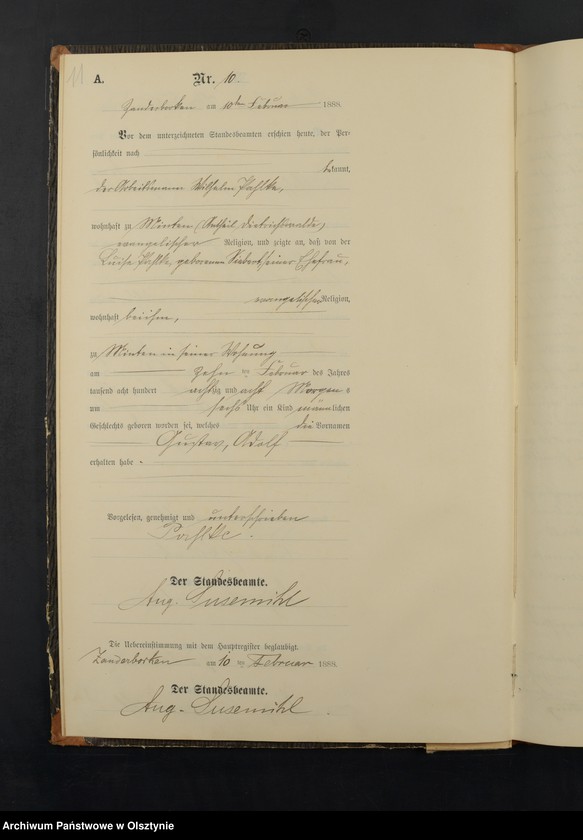 11
A.
Nr. 10.
Zanderborken am 10ten Februar 1888.
Vor dem unterzeichneten Standesbeamten erschien heute, der Per-
sönlichkeit nach
bekannt,
der Arbeitsmann Wilhelm Pahlke,
wohnhaft zu Minten (Antheil Dietrichswalde)
evangelischer Religion, und zeigte an, daß von der
Luise Pahlke, geborenen Siebert seiner Ehefrau,
evangelischer Religion,
wohnhaft bei ihm,
zu Minten in seiner Wohnung
am zehn ten Februar des Jahres
tausend acht hundert achtzig und acht Morgens
um sechs Uhr ein Kind männlichen
Geschlechts geboren worden sei, welches die Vornamen
Gustav, Adolf
erhalten habe.
Vorgelesen, genehmigt und unterschrieben
Pahlke.
Der Standesbeamte.
Aug. Susemihl
Die Uebereinstimmung mit dem Hauptregister beglaubigt.
Zanderborken am 10 ten Februar 1888.
Der Standesbeamte.
Aug. Susemihl.
Archiwum Państwowe w Olsztynie